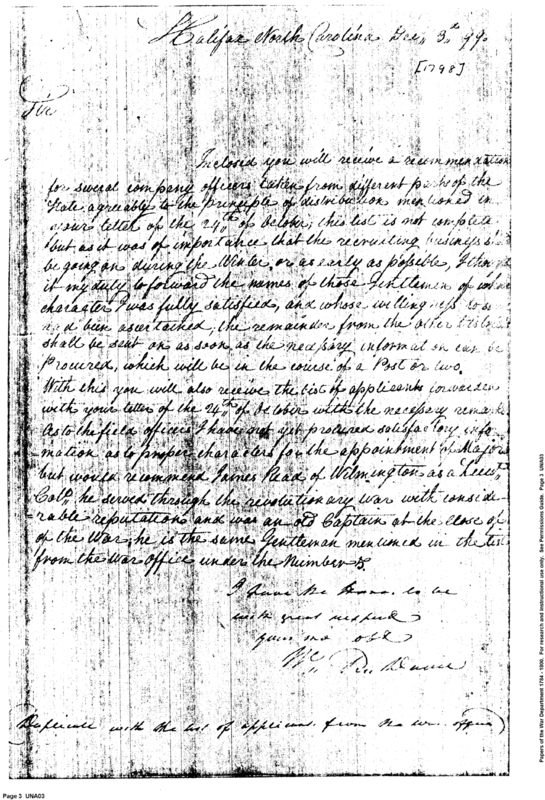 Halifax North Carolina Dec. 3.th 99.
[1798]
Sir
Inclosed you will receive a recommendation
for several company officers taken from different parts of the
State agreeably to the principle of distribution mentioned in
your letter of the 24.th of October, this list is not complete
but as it was of importance that the recruiting business
be going on during the Winter or as early as possible, I
it my duty to forward the names of those Gentlemen of whose
character I was fully satisfied, and whose willingness to
had been ascertained, the remainder from the other
shall be sent on as soon as the necessary information can be
Procured, which will be in the course of a Post or two.
With this you will also receive the list of applicants forwarded
with your letter of the 24.th of October with the necessary remarks
As to the field officers I have not yet procured satisfactory infor-
mation as to proper characters for the appointment of Majors
but would recommend James Read of Wilmington as a Lieut.
Col.o, he served through the revolutionary war with conside-
rable reputation and was an old Captain at the close of
of the War, he is the same Gentleman mentioned in the list
from the War office under the Number
I have the honor to be
with great respect
your mo obt
Wm R. Davie
(Duplicate with the list of applicants from the war office)
Papers of the War Department 1784 - 1800. For research and instructional use only. See Permissions Guide. Page 3 UNA03
Page 3 UNA03